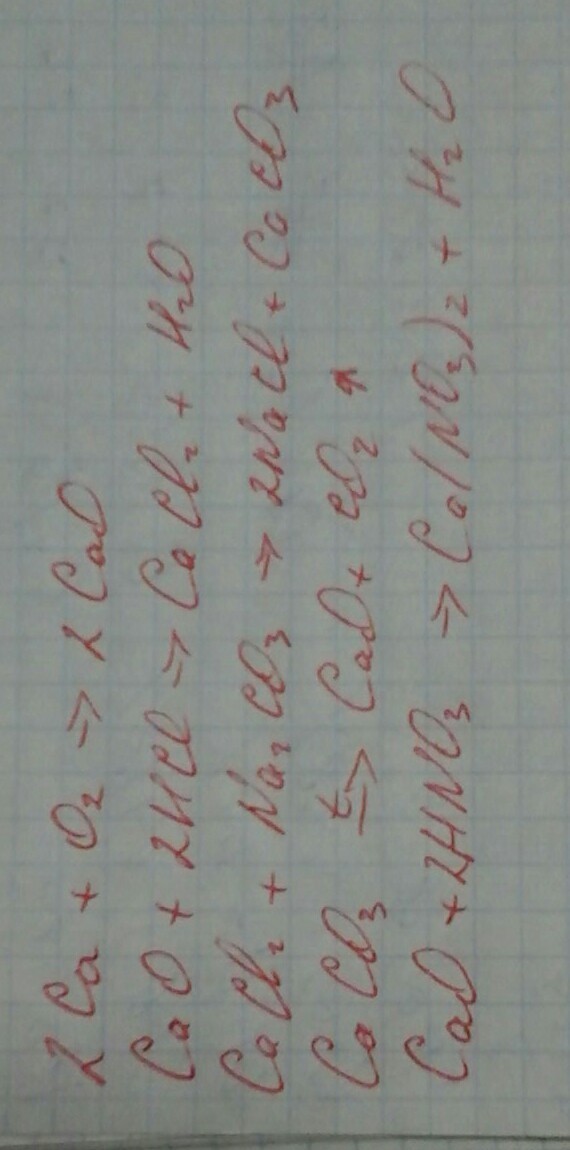 2Ca + O₂ ⇒ 2CaO
CaO + 2HCl ⇒ CaCl₂ + H₂O
CaCl₂ + Na₂CO₃ ⇒ 2NaCl + CaCO₃
CaCO₃ t⇒ CaO + CO₂ ↑
CaO + 2HNO₃ ⇒ Ca(NO₃)₂ + H₂O